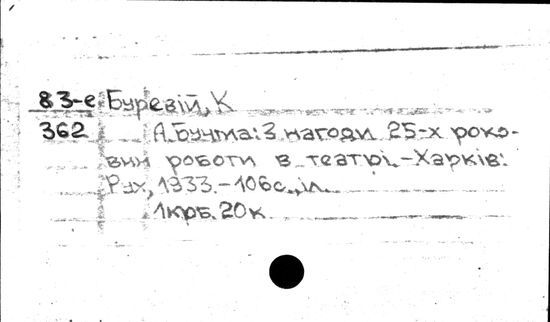 83-е Буревій, К
362 А. Бучма: З нагоди 25-х роко-
вин роботи в театрі. – Харків:
Рух, 1933. – 106 с., іл.
1 крб. 20 к.